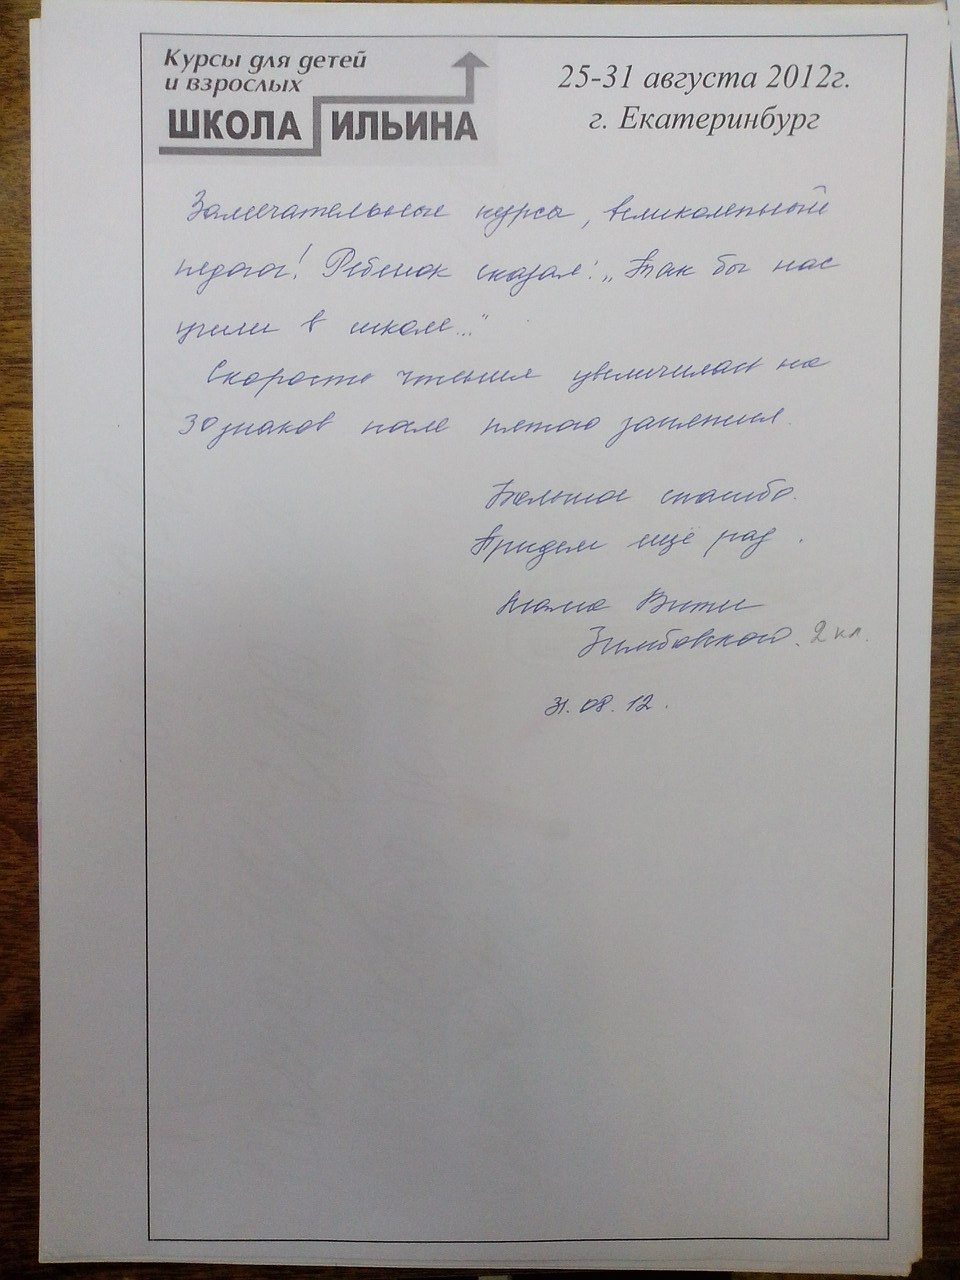 Курсы для детей
и взрослых
ШКОЛА ИЛЬИНА
25-31 августа 2012г.
г. Екатеринбург
Замечательные курсы, великолепный
педагог! Ребенок сказал: „Так бы нас
учили в школе..."
Скорость чтения увеличилась на
30 знаков после пятого занятия.
Большое спасибо.
Придем ещё раз.
Мама Вити
Зимбовского. 2 кл.
31.08.12.